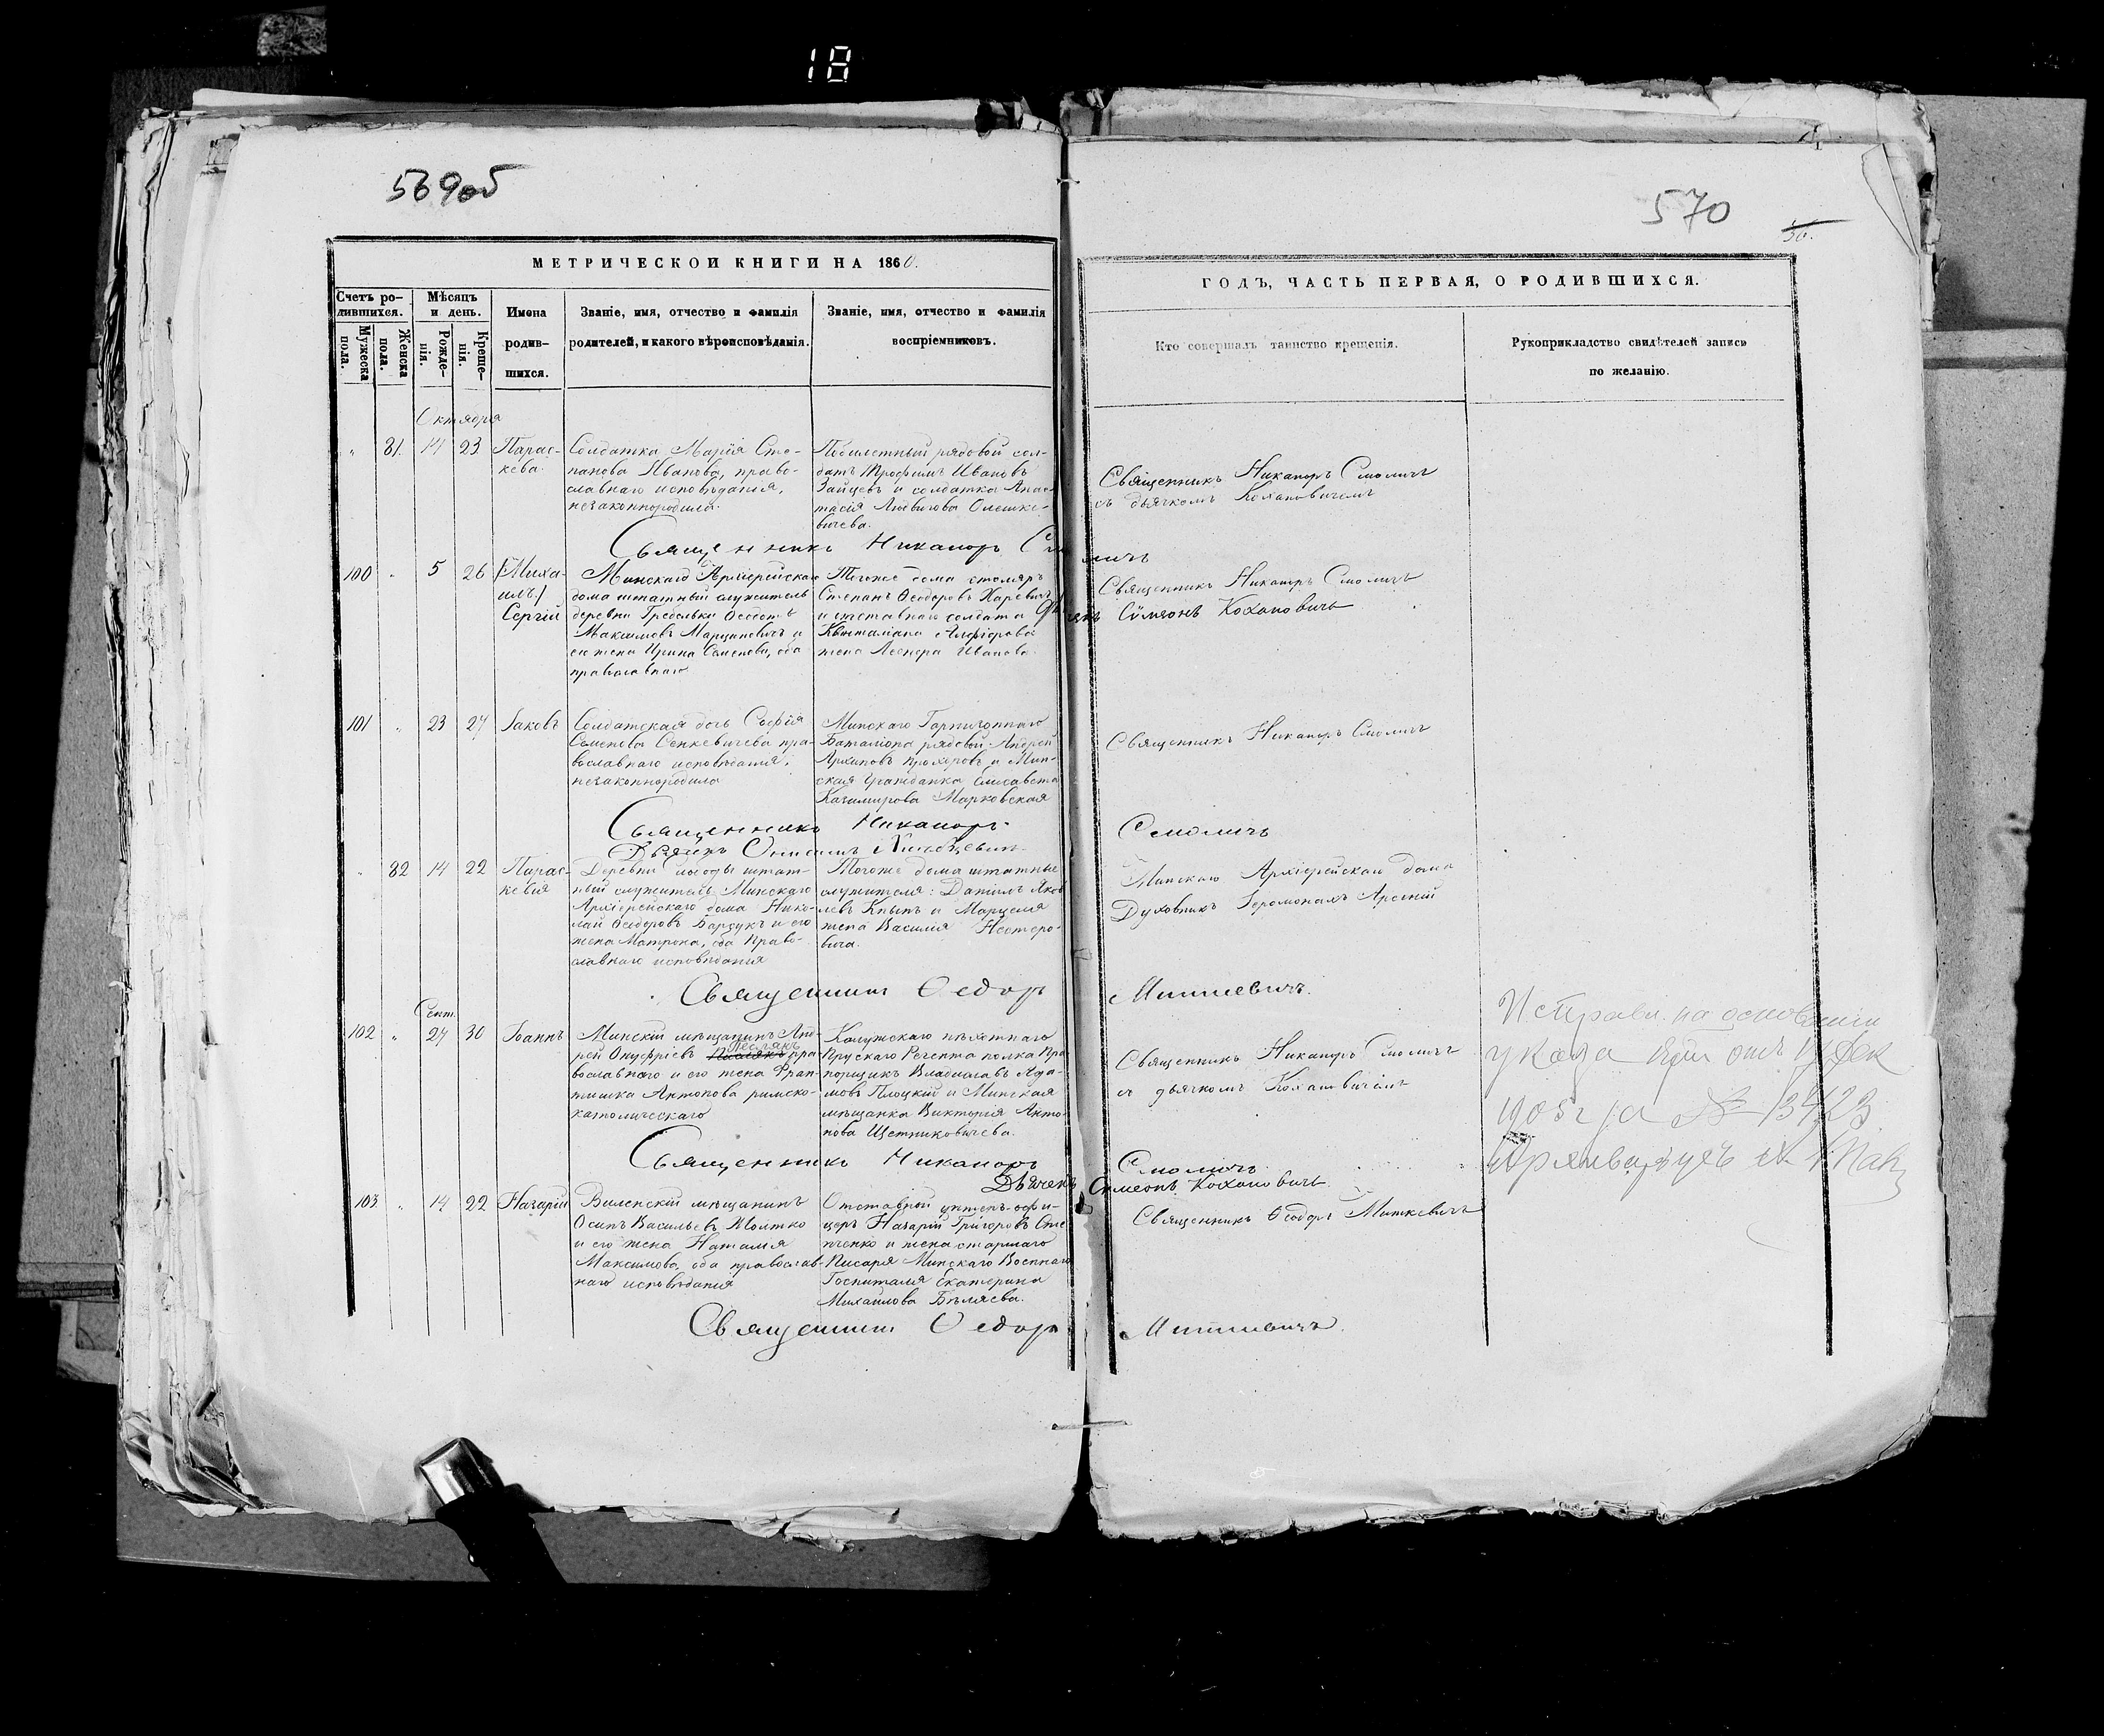 18
569об
570
36.
МЕТРИЧЕСКОЙ КНИГИ НА 1860.
ГОДЪ, ЧАСТЬ ПЕРВАЯ, О РОДИВШИХСЯ.
Счетъ ро-
дившихся.
Мужеска пола.
Женска пола.
Мѣсяцъ
и день.
Рожде-
нія.
Креще-
нія.
Имена
родив-
шихся.
Званіе, имя, отчество и фамилія
родителей, и какого вѣроисповѣданія.
Званіе, имя, отчество и фамилія
воспріемниковъ.
Кто совершалъ таинство крещенія.
Рукоприкладство свидѣтелей записи
по желанію.
Октября
" 81. 14 23
Парас-
кева.
Солдатка Марія Сте-
панова Иванова, право-
славнаго исповѣданія,
незаконнородила.
рядовой сол-
датъ Трофимъ Ивановъ
Зайцевъ и солдатка Анас-
тасія Олешке-
вичева.
Священникъ Никаноръ Смоличъ
съ дьячкомъ Кохановичемъ
Священникъ Никаноръ Смоличъ
100 " 5 26
(Миха-
илъ)
Сергій
Минскаго Архіерейскаго
дома штатный служитель
деревни Гребельки Ѳеодотъ
Максимовъ Марцинович и
его жена Ирина Семенова, оба
православнаго
Тогоже дома столяръ
Степанъ Ѳеодоровъ Харевичъ
и отставнаго солдата
жена Иванова.
Священникъ Никаноръ Смоличъ
Дьячекъ Сѵмеонъ Кохановичъ
101 " 23 27
Іаковъ
Солдатская дочь Софія
Семенова Сенкевичева пра-
вославнаго исповѣданія,
незаконнородила
Минскаго Гарнизоннаго
Баталіона рядовой Андрей
Архиповъ Прохоровъ и Мин-
ская гражданка Елисавета
Казимирова Марковская
Священникъ Никаноръ Смоличъ
Священникъ Никаноръ Смоличъ
Дьячекъ
" 82 14 22
Парас-
кевія
Деревни штат-
ный служитель Минскаго
Архіерейскаго дома Нико-
лай Ѳеодоровъ Барсукъ и его
жена Матрона, оба Право-
славнаго исповѣданія
Тогоже дома штатные
служителя: Даніилъ Яков-
левъ Кнышъ и Марцеля
жена Василія Нестеро-
вича.
Минскаго Архіерейскаго дома
Духовникъ Іеромонахъ Арсеній
Священникъ Ѳедоръ Миткевичъ.
Сент.
102 " 27 30
Іоаннъ
Минскій мѣщанинъ Анд-
рей Онуфріевъ Песлякъ пра-
вославнаго и его жена Фран-
тишка Антонова римско-
католическаго
Калужскаго пѣхотнаго
Прускаго Регента полка Пра-
порщикъ Владиславъ Ада-
мовъ Плоцкій и Минская
мѣщанка Викторія Анто-
нова Щетниковичева.
Священникъ Никаноръ Смоличъ
съ дьячкомъ Кохановичемъ
Исправл. на основаніи
указа отъ 19 Дек
1905 г за № 13423
Священникъ Никаноръ Смоличъ
Дьячекъ Симеонъ Кохановичъ
103 " 14 22
Назарій
Виленскій мѣщанинъ
Осипъ Васильевъ
и его жена Наталія
Максимова, оба православ-
наго исповѣданія
Отставной унтеръ-офи-
церъ Назарій Григоровъ Сте-
ченко и жена старшаго
Писаря Минскаго Военнаго
Госпиталя Екатерина
Михайлова Бѣляева.
Священникъ Ѳеодоръ Миткевичъ
Священникъ Ѳедоръ Миткевичъ.